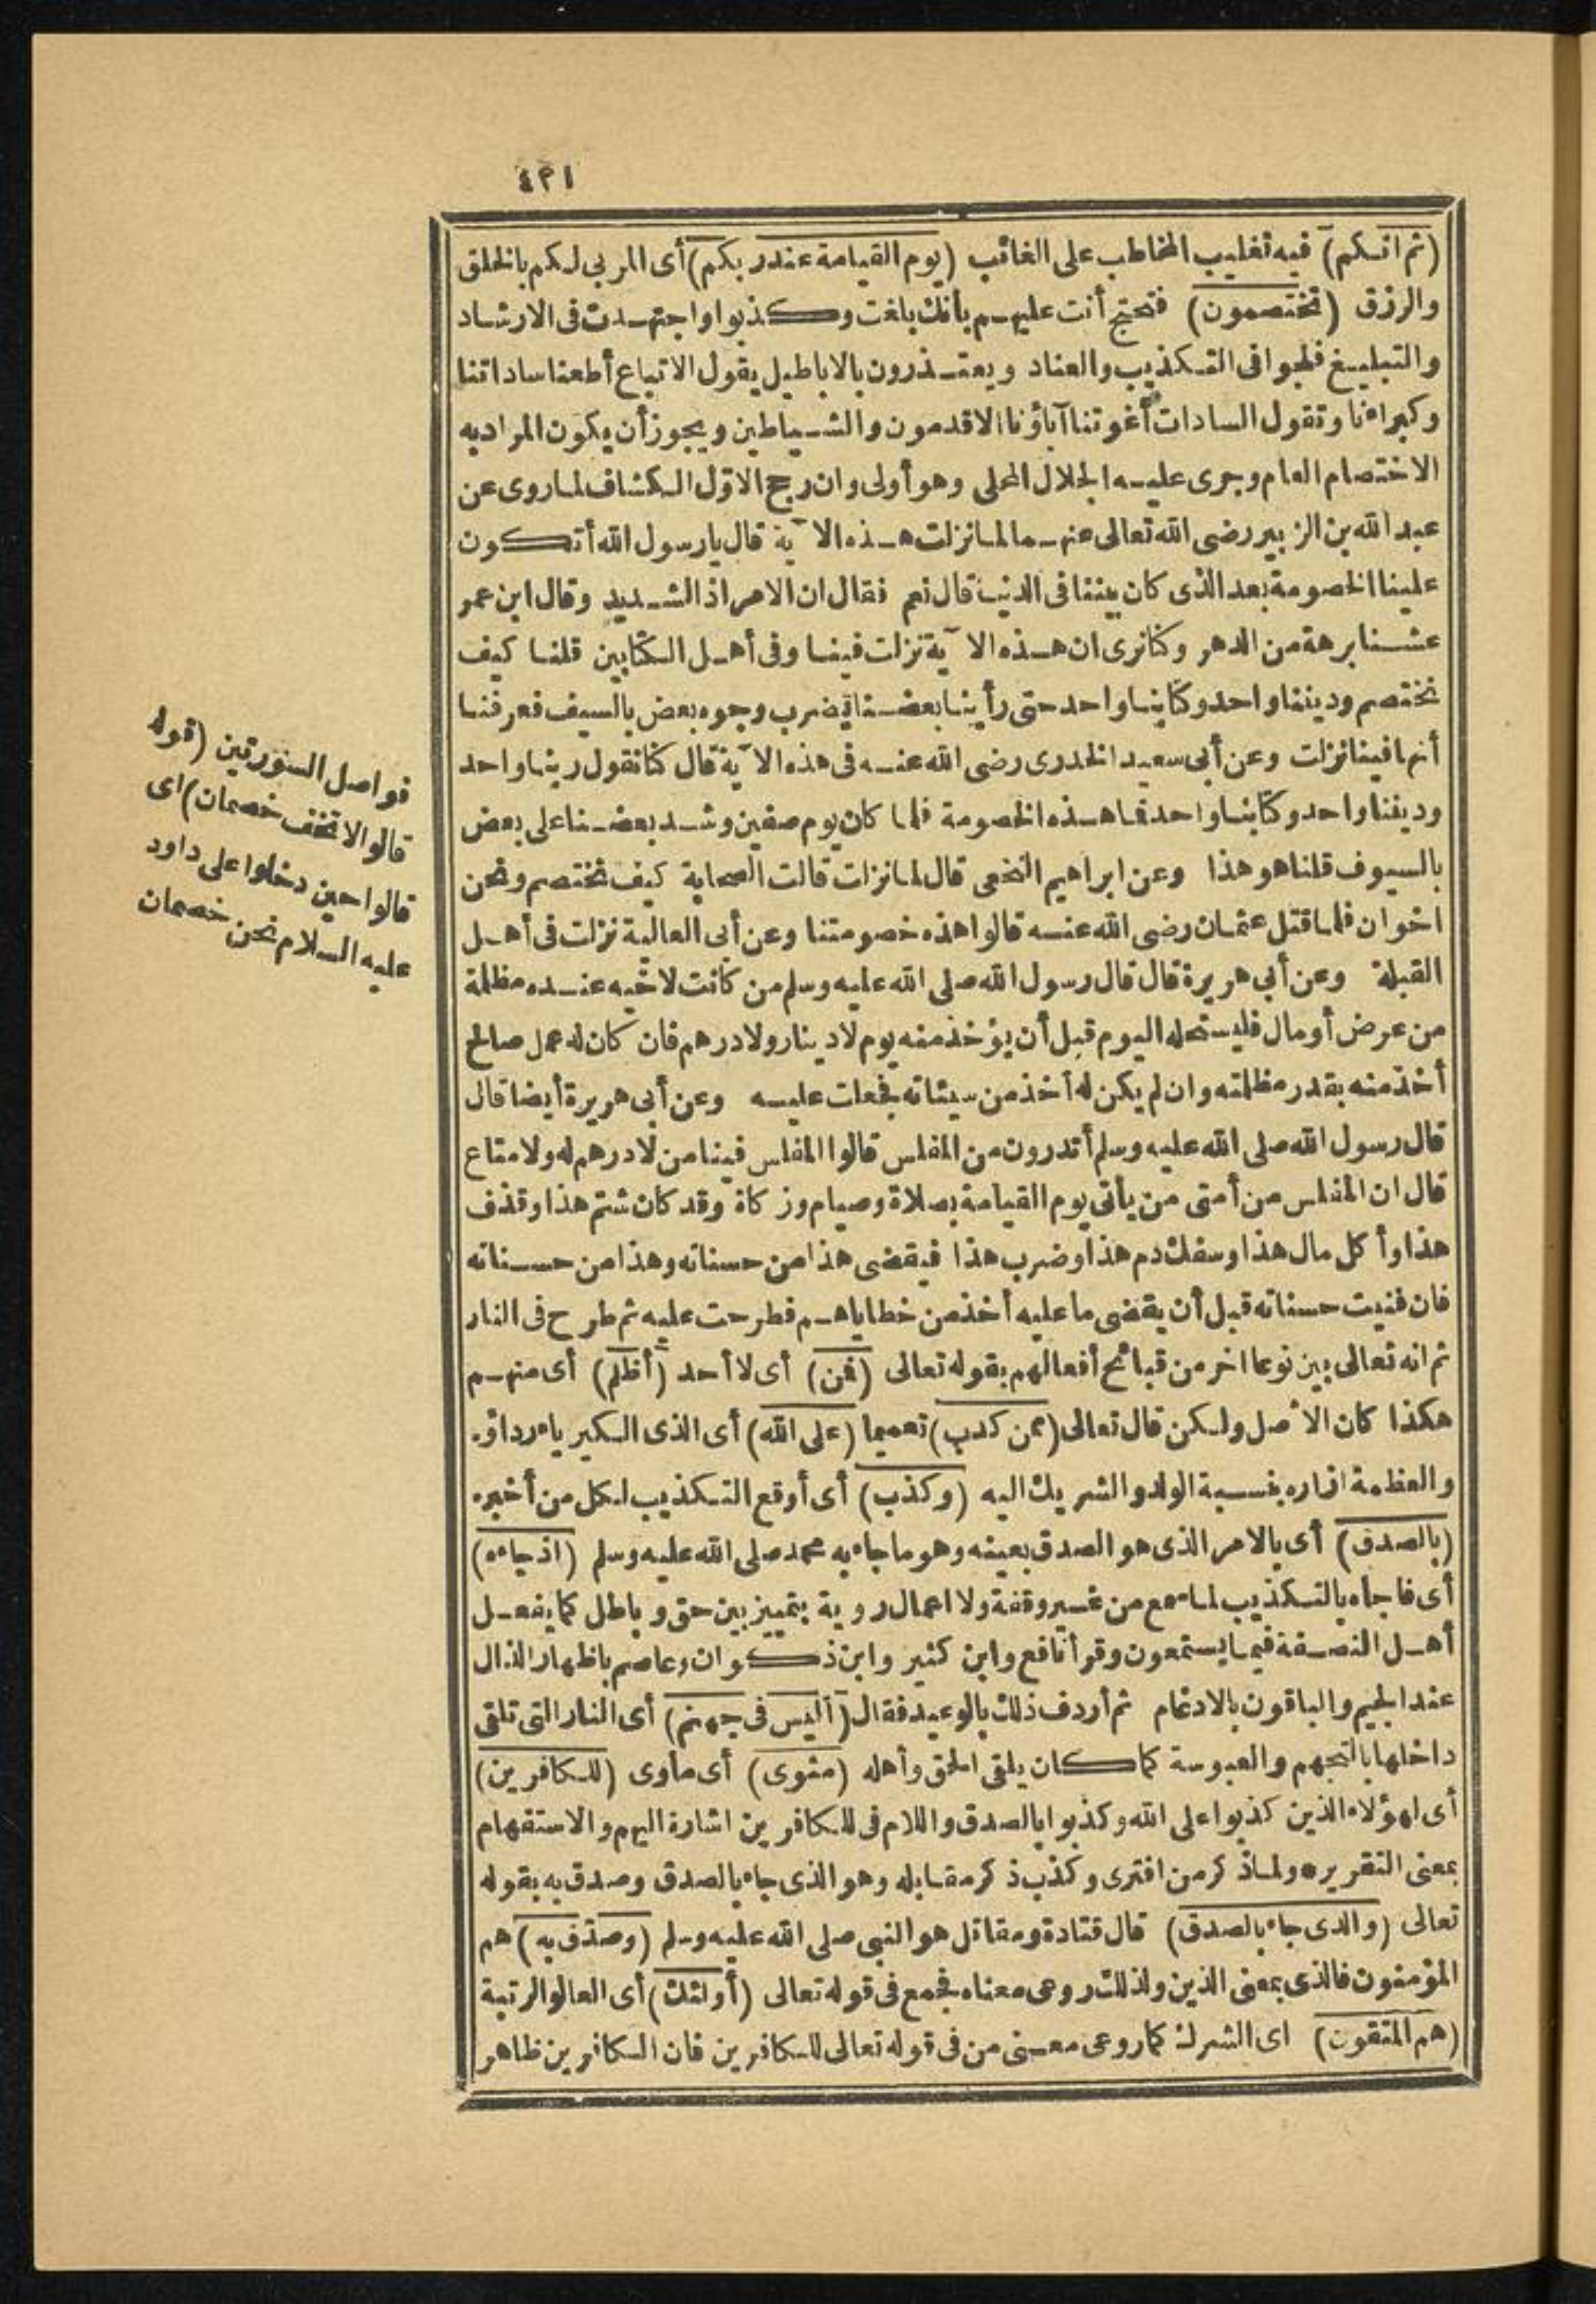 ٤٣١
(ثم انكم) فيه تغليب المخاطب على الغائب (يوم القيامة عند ربكم) أى المربى لكم بالخلق
والرزق (تختصمون) فتحتج أنت عليهم بأنك بلغت وكذبوا واجتهدت فى الارشاد
والتبليغ فلجوا فى التكذيب والعناد ويعتذرون بالاباطيل يقول الاتباع أطعنا ساداتنا
وكبراءنا وتقول السادات أغوتنا آباؤنا الاقدمون والشياطين ويجوز أن يكون المراد به
الاختصام العام وجرى عليه الجلال المحلى وهو أولى وان رجح الاول الكشاف لما روى عن
عبد الله بن الزبير رضى الله تعالى عنهما لما نزلت هذه الآية قال يارسول الله أتكون
علينا الخصومة بعد الذى كان بيننا فى الدنيا قال نعم فقال ان الامر اذا لشديد وقال ابن عمر
عشنا برهة من الدهر وكنا نرى ان هذه الآية نزلت فينا وفى أهل الكتابين قلنا كيف
نختصم وديننا واحد وكتابنا واحد حتى رأينا بعضنا يضرب وجوه بعض بالسيف فعرفنا
أنها فينا نزلت وعن أبى سعيد الخدرى رضى الله عنه فى هذه الآية قال كنا نقول ربنا واحد
وديننا واحد وكتابنا واحد فما هذه الخصومة فلما كان يوم صفين وشد بعضنا على بعض
بالسيوف قلنا هو هذا وعن ابراهيم النخعى قال لما نزلت قالت الصحابة كيف نختصم ونحن
اخوان فلما قتل عثمان رضى الله عنه قالوا هذه خصومتنا وعن أبى العالية نزلت فى أهل
القبلة وعن أبى هريرة قال قال رسول الله صلى الله عليه وسلم من كانت لاخيه عنده مظلمة
من عرض أو مال فليستحله اليوم قبل أن يؤخذ منه يوم لا دينار ولا درهم فان كان له عمل صالح
أخذ منه بقدر مظلمته وان لم يكن له أخذ من سيئاته فجعلت عليه وعن أبى هريرة أيضا قال
قال رسول الله صلى الله عليه وسلم أتدرون من المفلس قالوا المفلس فينا من لا درهم له ولا متاع
قال ان المفلس من أمتى من يأتى يوم القيامة بصلاة وصيام وزكاة وقد كان شتم هذا وقذف
هذا وأكل مال هذا وسفك دم هذا وضرب هذا فيقضى هذا من حسناته وهذا من حسناته
فان فنيت حسناته قبل أن يقضى ما عليه أخذ من خطاياهم فطرحت عليه ثم طرح فى النار
ثم انه تعالى بين نوعا اخر من قبائح أفعالهم بقوله تعالى (فمن) أى لا أحد (أظلم) أى منهم
هكذا كان الاصل ولكن قال تعالى (ممن كذب) تعميما (على الله) أى الذى الكبرياء رداؤه
والعظمة ازاره بنسبة الولد والشريك اليه (وكذب) أى أوقع التكذيب لكل من أخبره
(بالصدق) أى بالامر الذى هو الصدق بعينه وهو ما جاء به محمد صلى الله عليه وسلم (اذ جاءه)
أى فاجأه بالتكذيب لما سمع من غير وقفة ولا اعمال روية بتمييز بين حق وباطل كما يفعل
أهل النصفة فيما يستمعون وقرأ نافع وابن كثير وابن ذكوان وعاصم باظهار الذال
عند الجيم والباقون بالادغام ثم أردف ذلك بالوعيد فقال (أليس فى جهنم) أى النار التى تلقى
داخلها بالتجهم والعبوسة كما كان يلقى الحق وأهله (مثوى) أى مأوى (للكافرين)
أى لهؤلاء الذين كذبوا على الله وكذبوا بالصدق واللام فى للكافرين اشارة اليهم والاستفهام
بمعنى التقرير ولما ذكر من افترى وكذب ذكر مقابله وهو الذى جاء بالصدق وصدق به بقوله
تعالى (والذى جاء بالصدق) قال قتادة ومقاتل هو النبى صلى الله عليه وسلم (وصدق به) هم
المؤمنون فالذى بمعنى الذين ولذلك روعى معناه فجمع فى قوله تعالى (أولئك) أى العالو الرتبة
(هم المتقون) اى الشرك كما روعى معنى من فى قوله تعالى للكافرين فان الكافرين ظاهر
فواصل السورتين (قوله
قالوا لا تخف خصمان) اى
قالوا حين دخلوا على داود
عليه السلام نحن خصمان